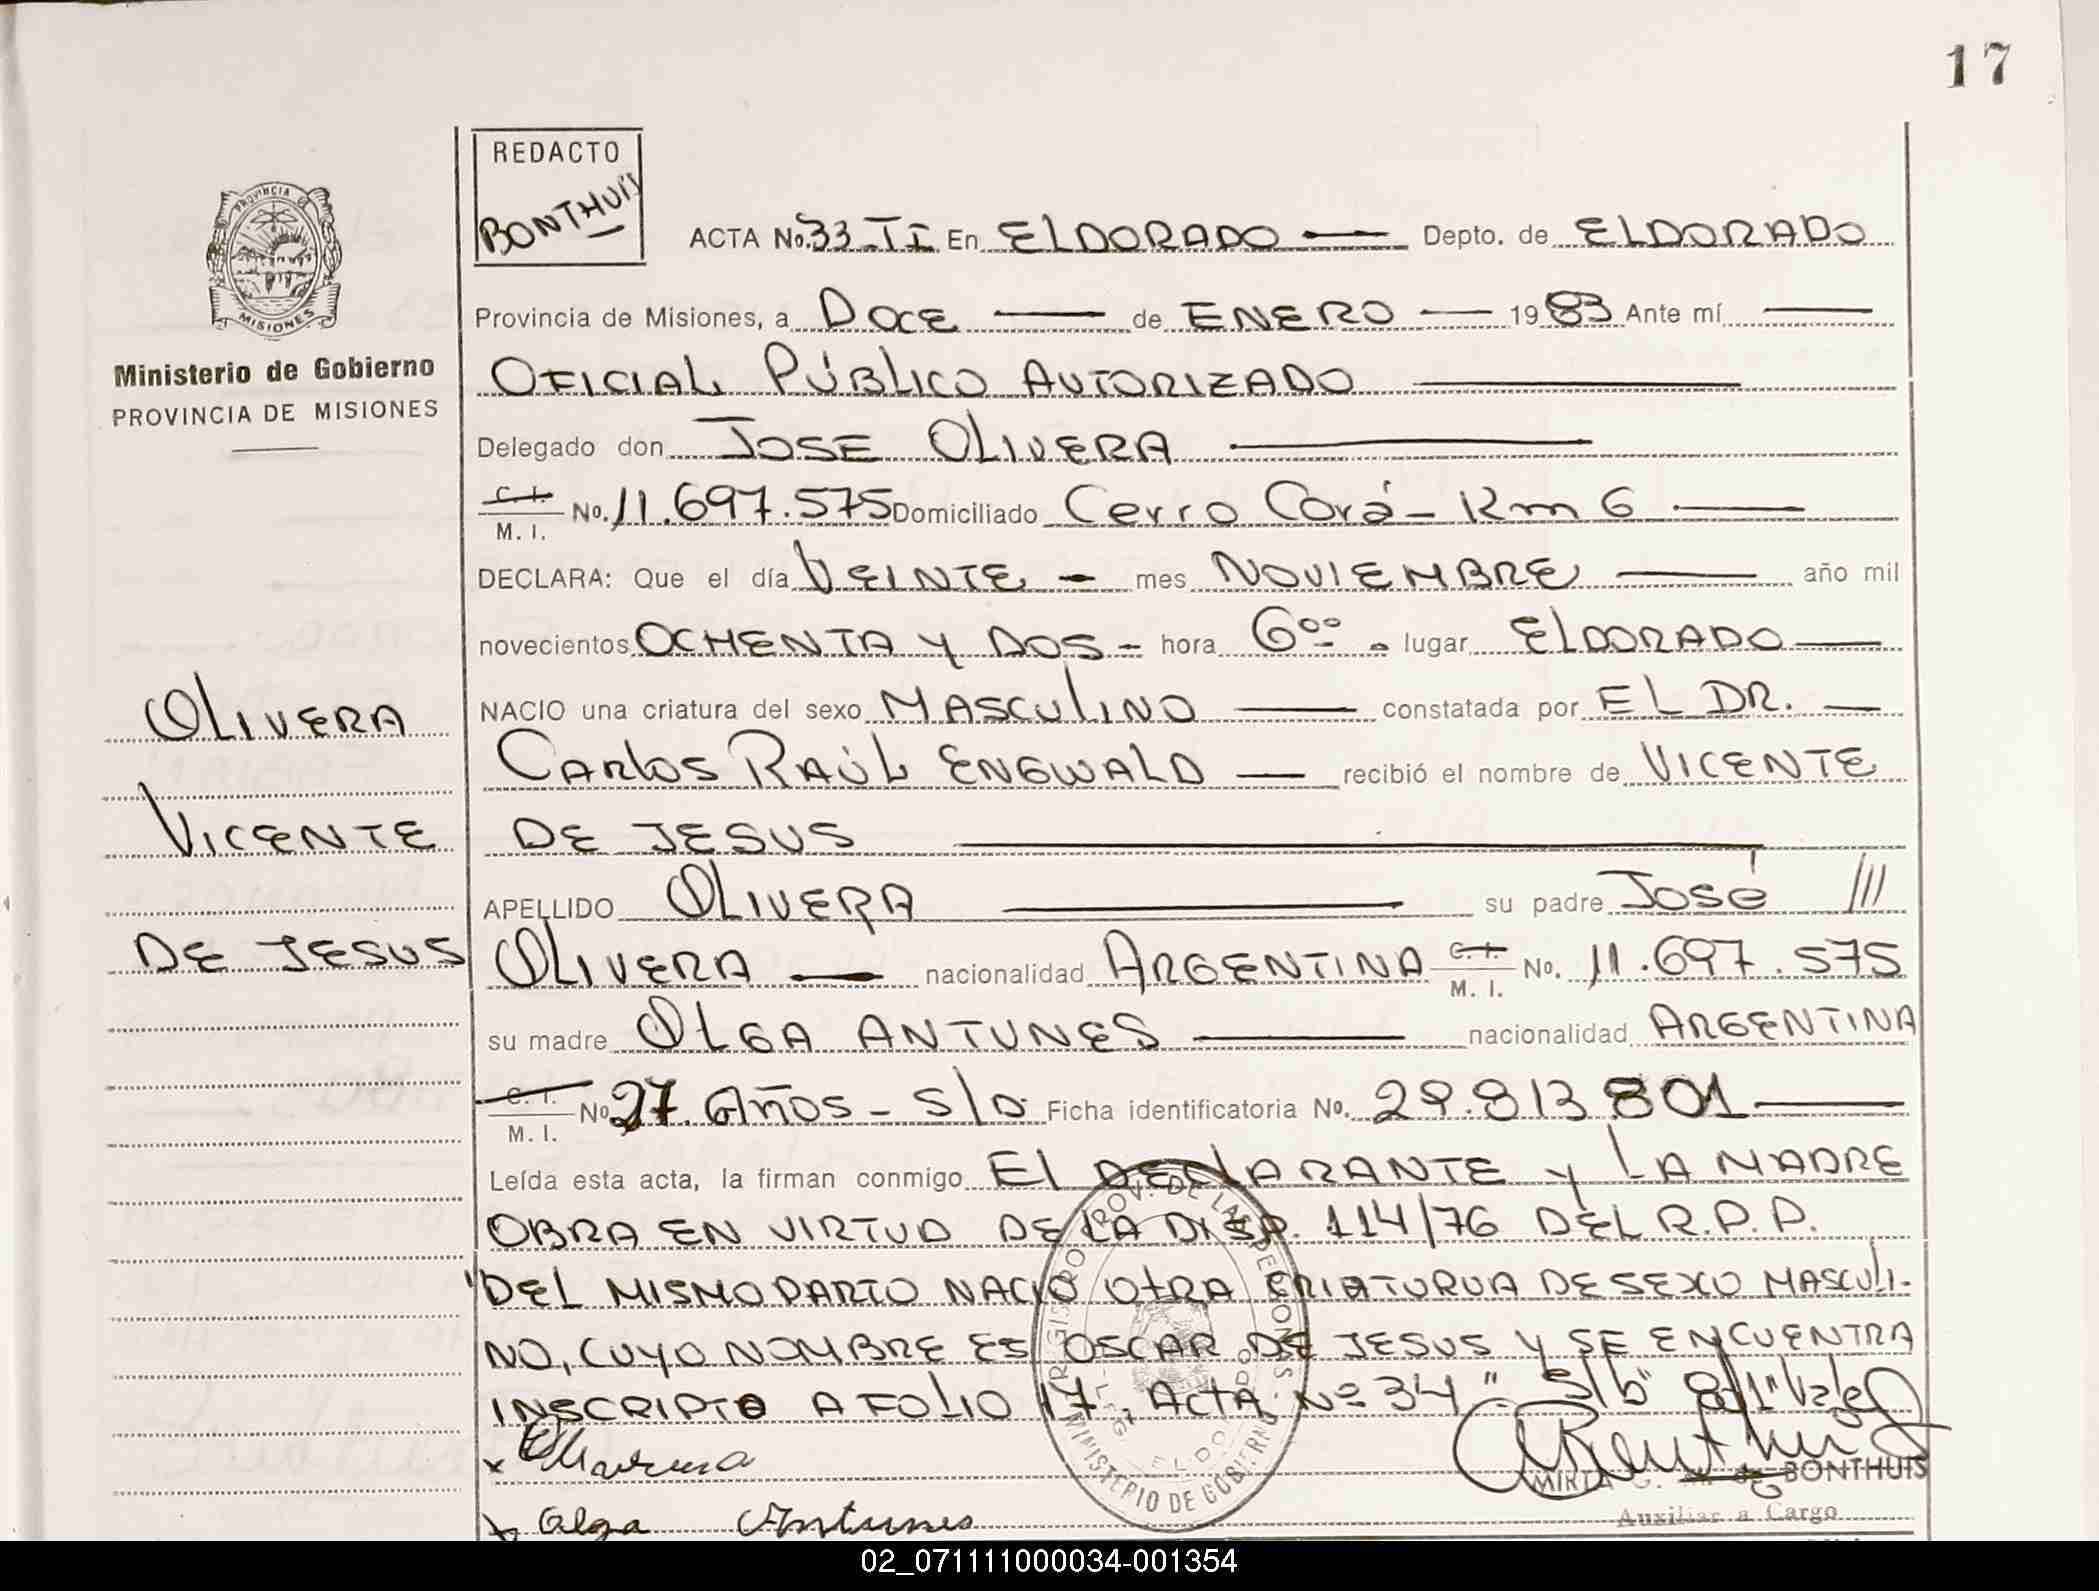 17
REDACTO
BONTHUIS
PROVINCIA DE
MISIONES
Ministerio de Gobierno
PROVINCIA DE MISIONES
ACTA No. 33-II En ELDORADO — Depto. de ELDORADO
Provincia de Misiones, a DOCE — de ENERO — 1983 Ante mí —
OFICIAL PÚBLICO AUTORIZADO —
Delegado don JOSE OLIVERA —
C. I. M. I. No. 11.697.575 Domiciliado Cerro Corá - Km 6 —
DECLARA: Que el día VEINTE — mes NOVIEMBRE — año mil
novecientos OCHENTA Y DOS - hora 6 00 - lugar ELDORADO —
NACIO una criatura del sexo MASCULINO — constatada por EL DR. —
CARLOS RAÚL ENGWALD — recibió el nombre de VICENTE
DE JESUS —
APELLIDO OLIVERA — su padre JOSÉ ///
OLIVERA — nacionalidad ARGENTINA C. I. M. I. No. 11.697.575
su madre OLGA ANTUNES — nacionalidad ARGENTINA
C. I. M. I. No 27 AÑOS - S/D Ficha identificatoria No. 29.813.801 —
Leída esta acta, la firman conmigo El DECLARANTE Y LA MADRE
OBRA EN VIRTUD DE LA DISP. 114/76 DEL R.P.P.
"DEL MISMO PARTO NACIO OTRA CRIATURUA DE SEXO MASCULI-
NO, CUYO NOMBRE ES OSCAR DE JESUS Y SE ENCUENTRA
INSCRIPTO A FOLIO 17, ACTA Nº 34". S/b
OLIVERA
VICENTE
DE JESUS
x
x Olga Antunes
REGISTRO PROV. DE LAS PERSONAS
MINISTERIO DE GOBIERNO
ELDORADO
MIRTA G. de BONTHUIS
Auxiliar a Cargo
02_071111000034-001354